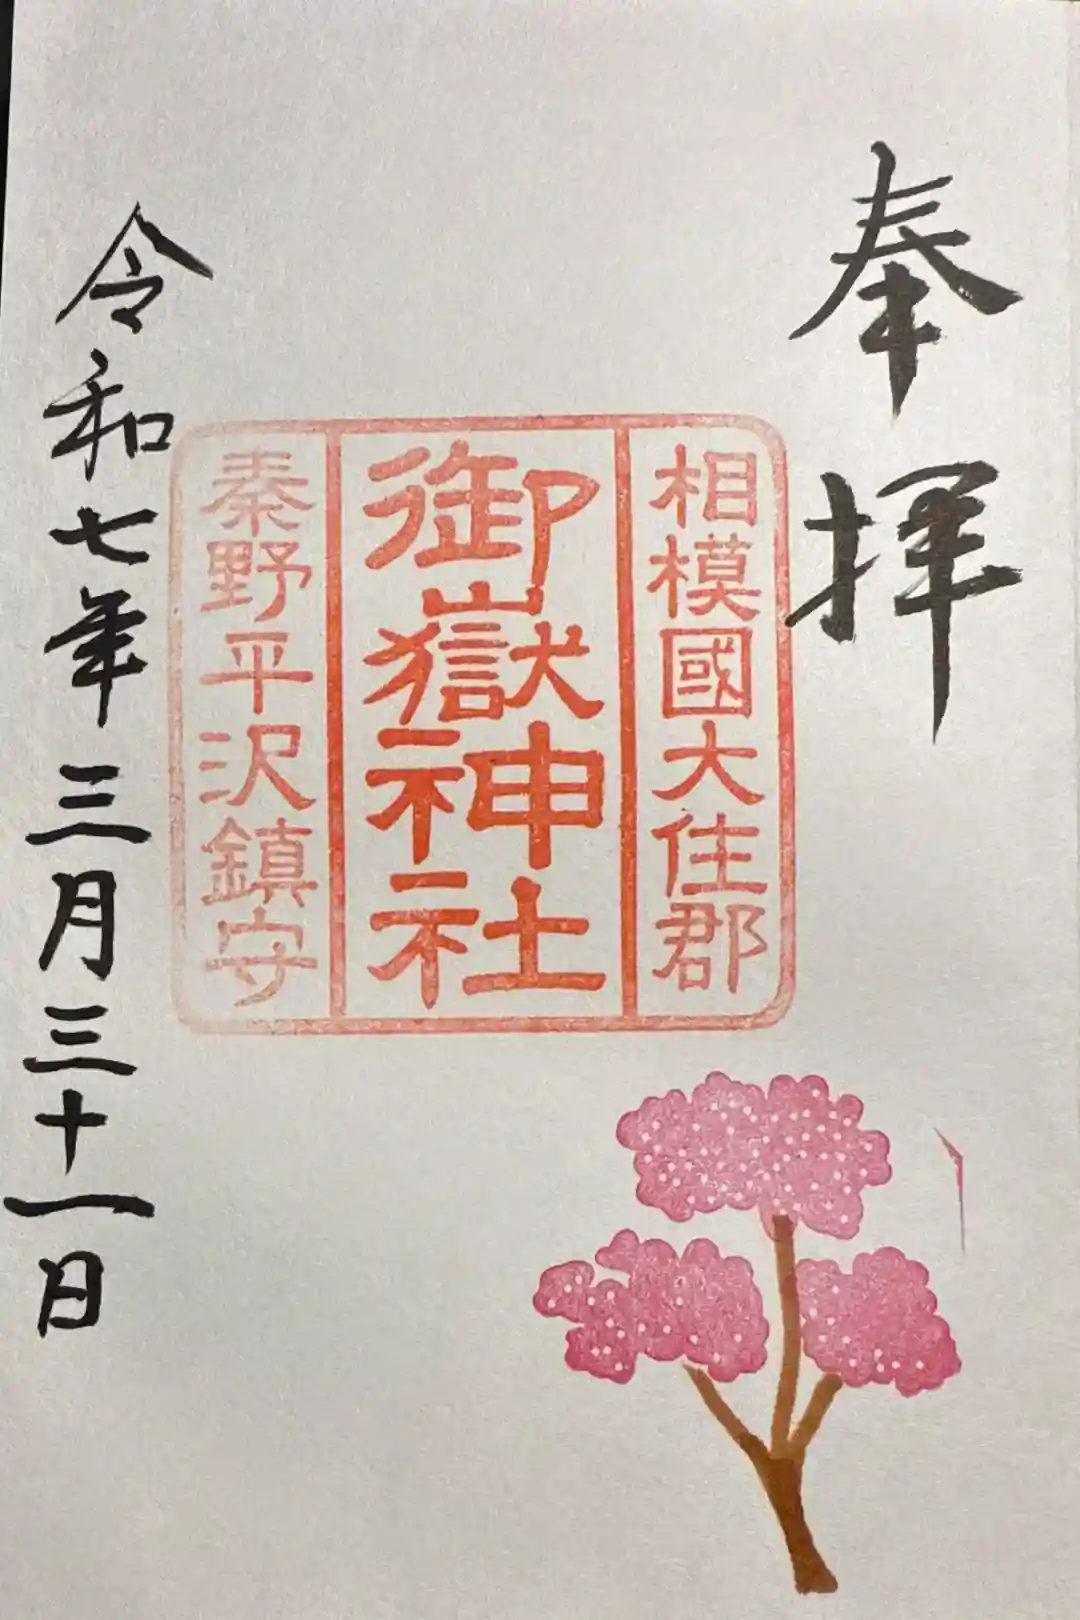 奉拝
相模國大住郡
御嶽神社
秦野平沢鎮守
令和七年三月三十一日